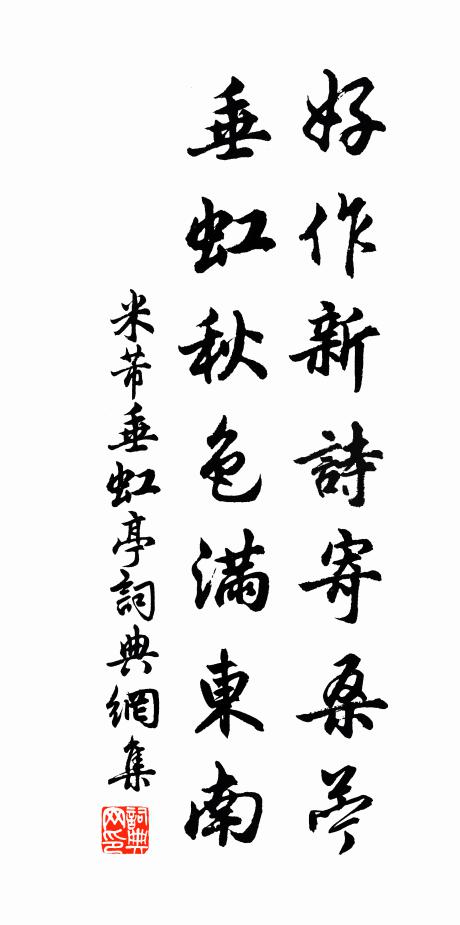 好作新詩寄桑苧
垂虹秋色滿東南
米芾垂虹亭詞典網集
詞典網印